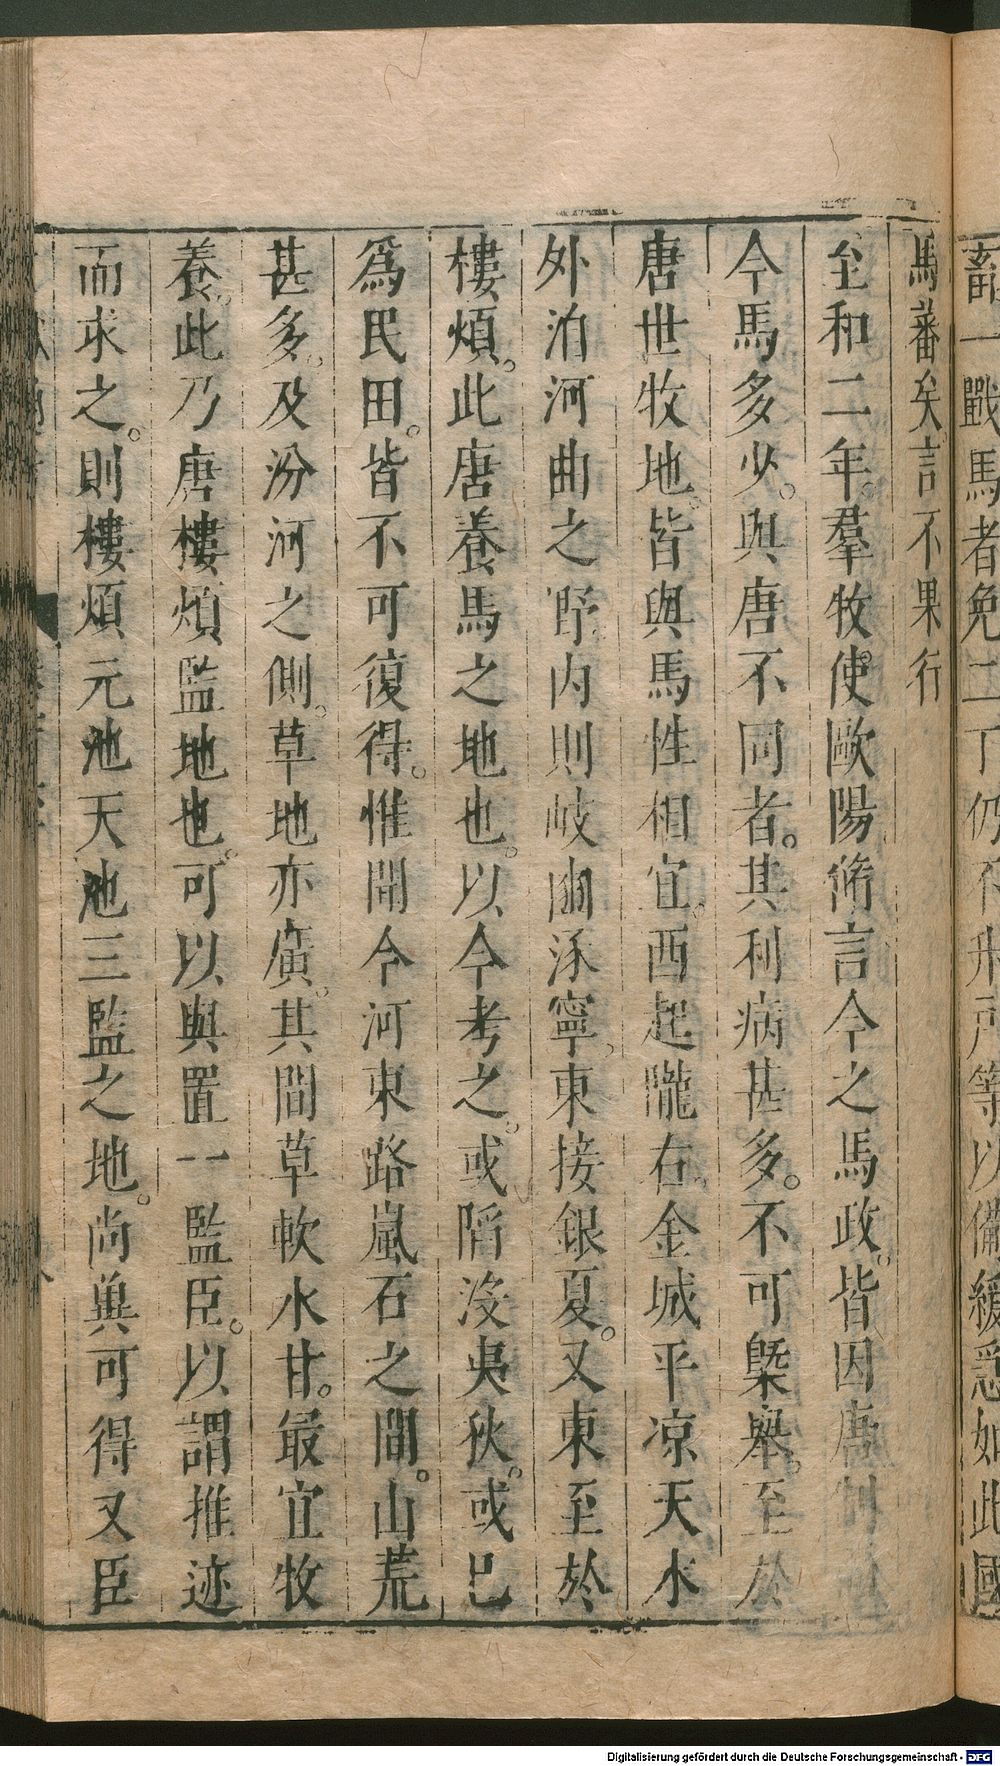 畜一戰馬者免二丁仍不升戶等以備緩急如此國
馬蕃矣言不果行
至和二年羣牧使歐陽脩言今之馬政皆因唐制而
今馬多少與唐不同者其利病甚多不可槩舉至於
唐世牧地皆與馬性相宜西起隴右金城平凉天水
外洎河曲之野内則岐豳涇寧東接銀夏又東至於
樓煩此唐養馬之地也以今考之或陷没夷狄或已
爲民田皆不可復得惟聞今河東路嵐石之間山荒
甚多及汾河之側草地亦廣其間草軟水甘最宜牧
養此乃唐樓煩監地也可以與置一監臣以謂推迹
而求之則樓煩元池天池三監之地尚兾可得又臣
Digitalisierung gefördert durch die Deutsche Forschungsgemeinschaft - DFG